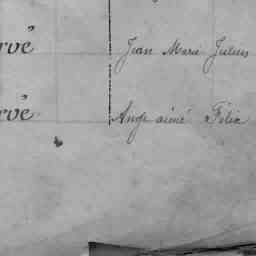 rvé Jean Marie Julien
rvé Ange aimé Félix